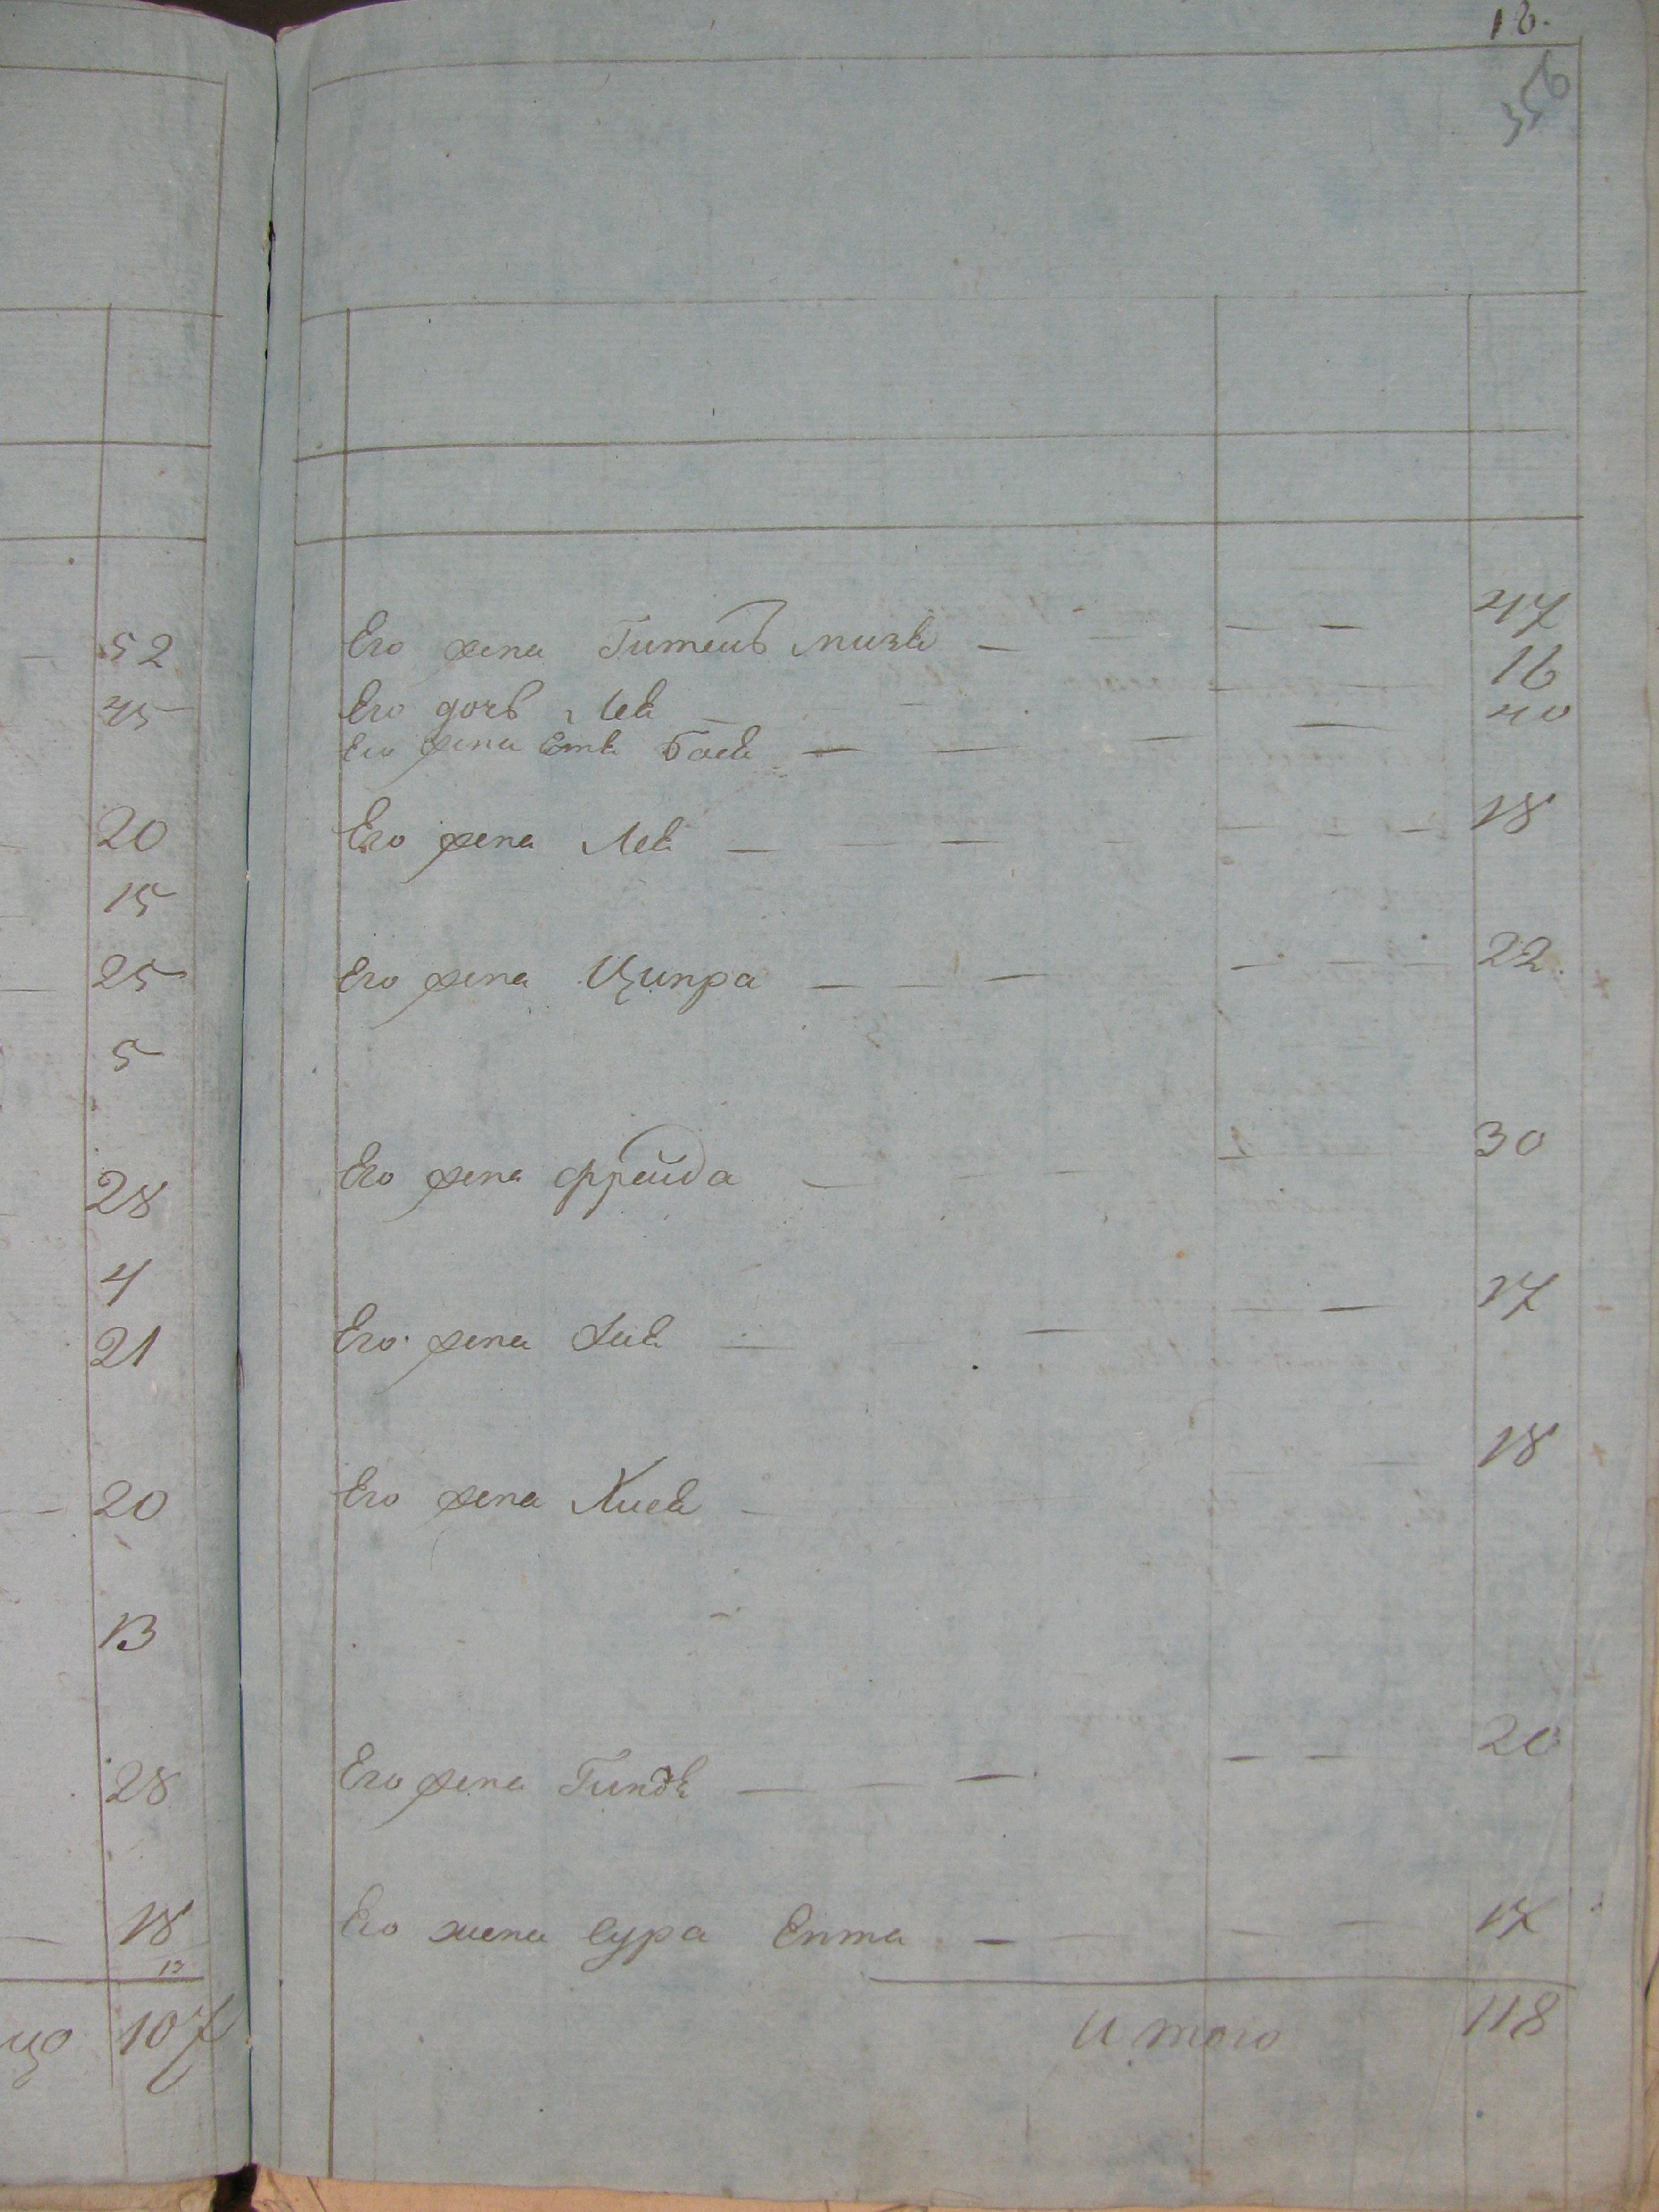 18.
356
52
45
20
15
25
5
28
4
21
20
13
28
18
13
107
Его жена Гитель 47
Его дочь Лея 16
Его жена Бася 40
Его жена Лея 18
Его жена Ципра 22
Его жена Фрейда 30
Его жена 17
Его жена Хися 18
Его жена Гиндя 20
Его жена Сура Ента 17
Итого 118